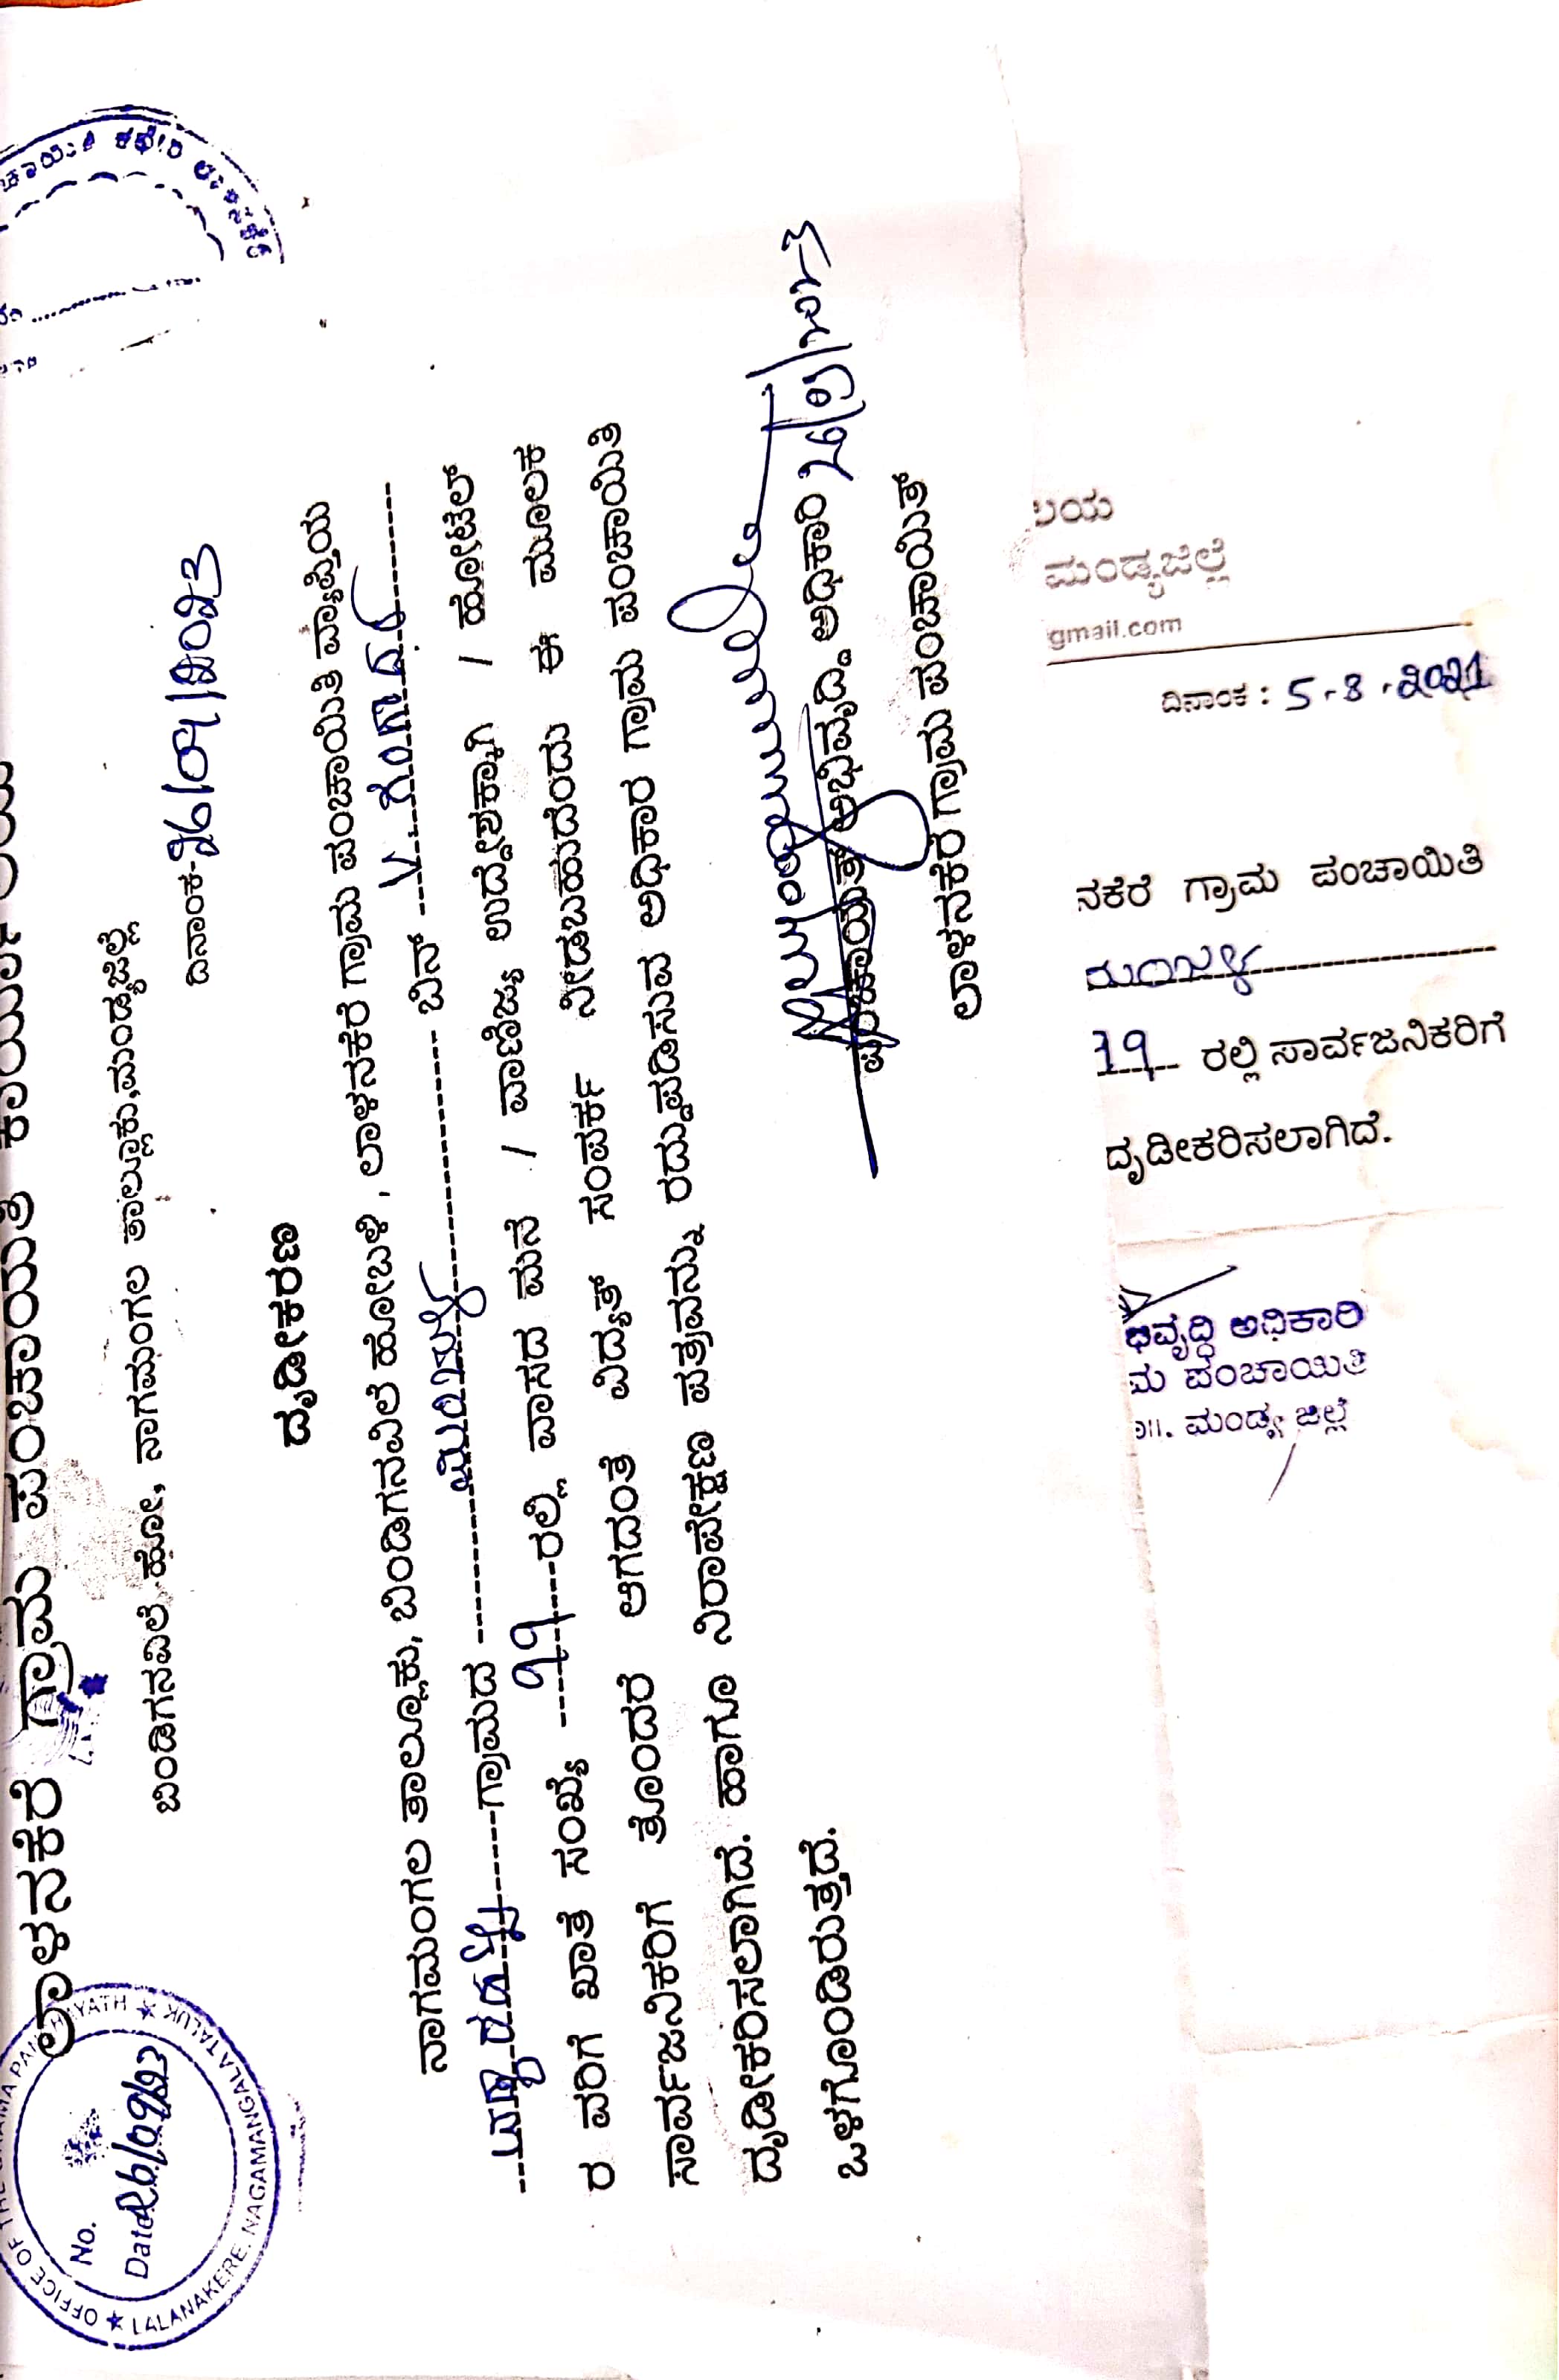 ಲಾಳನಕೆರೆ ಗ್ರಾಮ ಪಂಚಾಯಿತಿ
ಬಿಂಡಿಗನವಿಲೆ ಹೋ, ನಾಗಮಂಗಲ ತಾಲ್ಲೂಕು,ಮಂಡ್ಯಜಿಲ್ಲೆ
ದಿನಾಂಕ-26/09/2023
ದೃಡೀಕರಣ
ನಾಗಮಂಗಲ ತಾಲ್ಲೂಕು, ಬಿಂಡಿಗನವಿಲೆ ಹೋಬಳಿ, ಲಾಳನಕೆರೆ ಗ್ರಾಮ ಪಂಚಾಯಿತಿ ವ್ಯಾಪ್ತಿಯ
ಗ್ರಾಮದ ಮಂಜುಳ ಬಿನ್ V
ರ ವರಿಗೆ ಖಾತೆ ಸಂಖ್ಯೆ 19 ರಲ್ಲಿ ವಾಸದ ಮನೆ / ವಾಣಿಜ್ಯ ಉದ್ದೇಶಕ್ಕಾಗಿ / ಹೋಟೆಲ್
ಸಾರ್ವಜನಿಕರಿಗೆ ತೊಂದರೆ ಆಗದಂತೆ ವಿದ್ಯುತ್ ಸಂಪರ್ಕ ನೀಡಬಹುದೆಂದು ಈ ಮೂಲಕ
ದೃಡೀಕರಿಸಲಾಗಿದೆ. ಹಾಗೂ ನಿರಾಪೇಕ್ಷಣ ಪತ್ರವನ್ನು ರದ್ದುಪಡಿಸುವ ಅಧಿಕಾರ ಗ್ರಾಮ ಪಂಚಾಯಿತಿ
ಒಳಗೊಂಡಿರುತ್ತದೆ.
26/09/2023
ಪಂಚಾಯತ್ ಅಭಿವೃದ್ಧಿ ಅಧಿಕಾರಿ
ಲಾಳನಕೆರೆ ಗ್ರಾಮ ಪಂಚಾಯಿತ್
OFFICE OF THE GRAMA PANCHAYATH
LALANAKERE, NAGAMANGALA TALUK
No.
Date 26/09/23
ಲಯ
ಮಂಡ್ಯಜಿಲ್ಲೆ
gmail.com
ದಿನಾಂಕ : 5-8-2021
ನಕೆರೆ ಗ್ರಾಮ ಪಂಚಾಯಿತಿ
ಮಂಜುಳ
19 ರಲ್ಲಿ ಸಾರ್ವಜನಿಕರಿಗೆ
ದೃಡೀಕರಿಸಲಾಗಿದೆ.
ಭಿವೃದ್ಧಿ ಅಧಿಕಾರಿ
ಮ ಪಂಚಾಯಿತಿ
ಮಂಡ್ಯ ಜಿಲ್ಲೆ